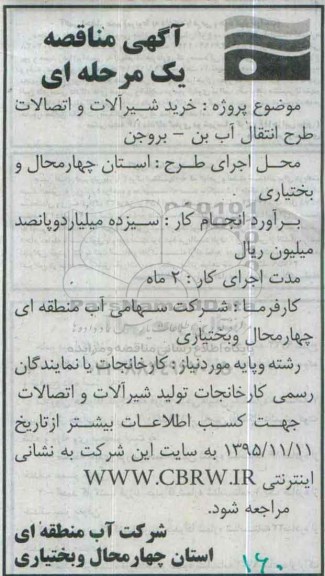 آگهی مناقصه
یک مرحله ای
موضوع پروژه : خرید شیرآلات و اتصالات
طرح انتقال آب بن – بروجن
محل اجرای طرح : استان چهارمحال و
بختیاری
برآورد انجام کار : سیزده میلیاردوپانصد
میلیون ریال
مدت اجرای کار : ۲ ماه
کارفرما : شرکت سهامی آب منطقه ای
چهارمحال وبختیاری
رشته وپایه موردنیاز : کارخانجات یا نمایندگان
رسمی کارخانجات تولید شیرآلات و اتصالات
جهت کسب اطلاعات بیشتر ازتاریخ
۱۳۹۵/۱۱/۱۱ به سایت این شرکت به نشانی
اینترنتی WWW.CBRW.IR
مراجعه شود.
شرکت آب منطقه ای
استان چهارمحال وبختیاری
۱۶۰